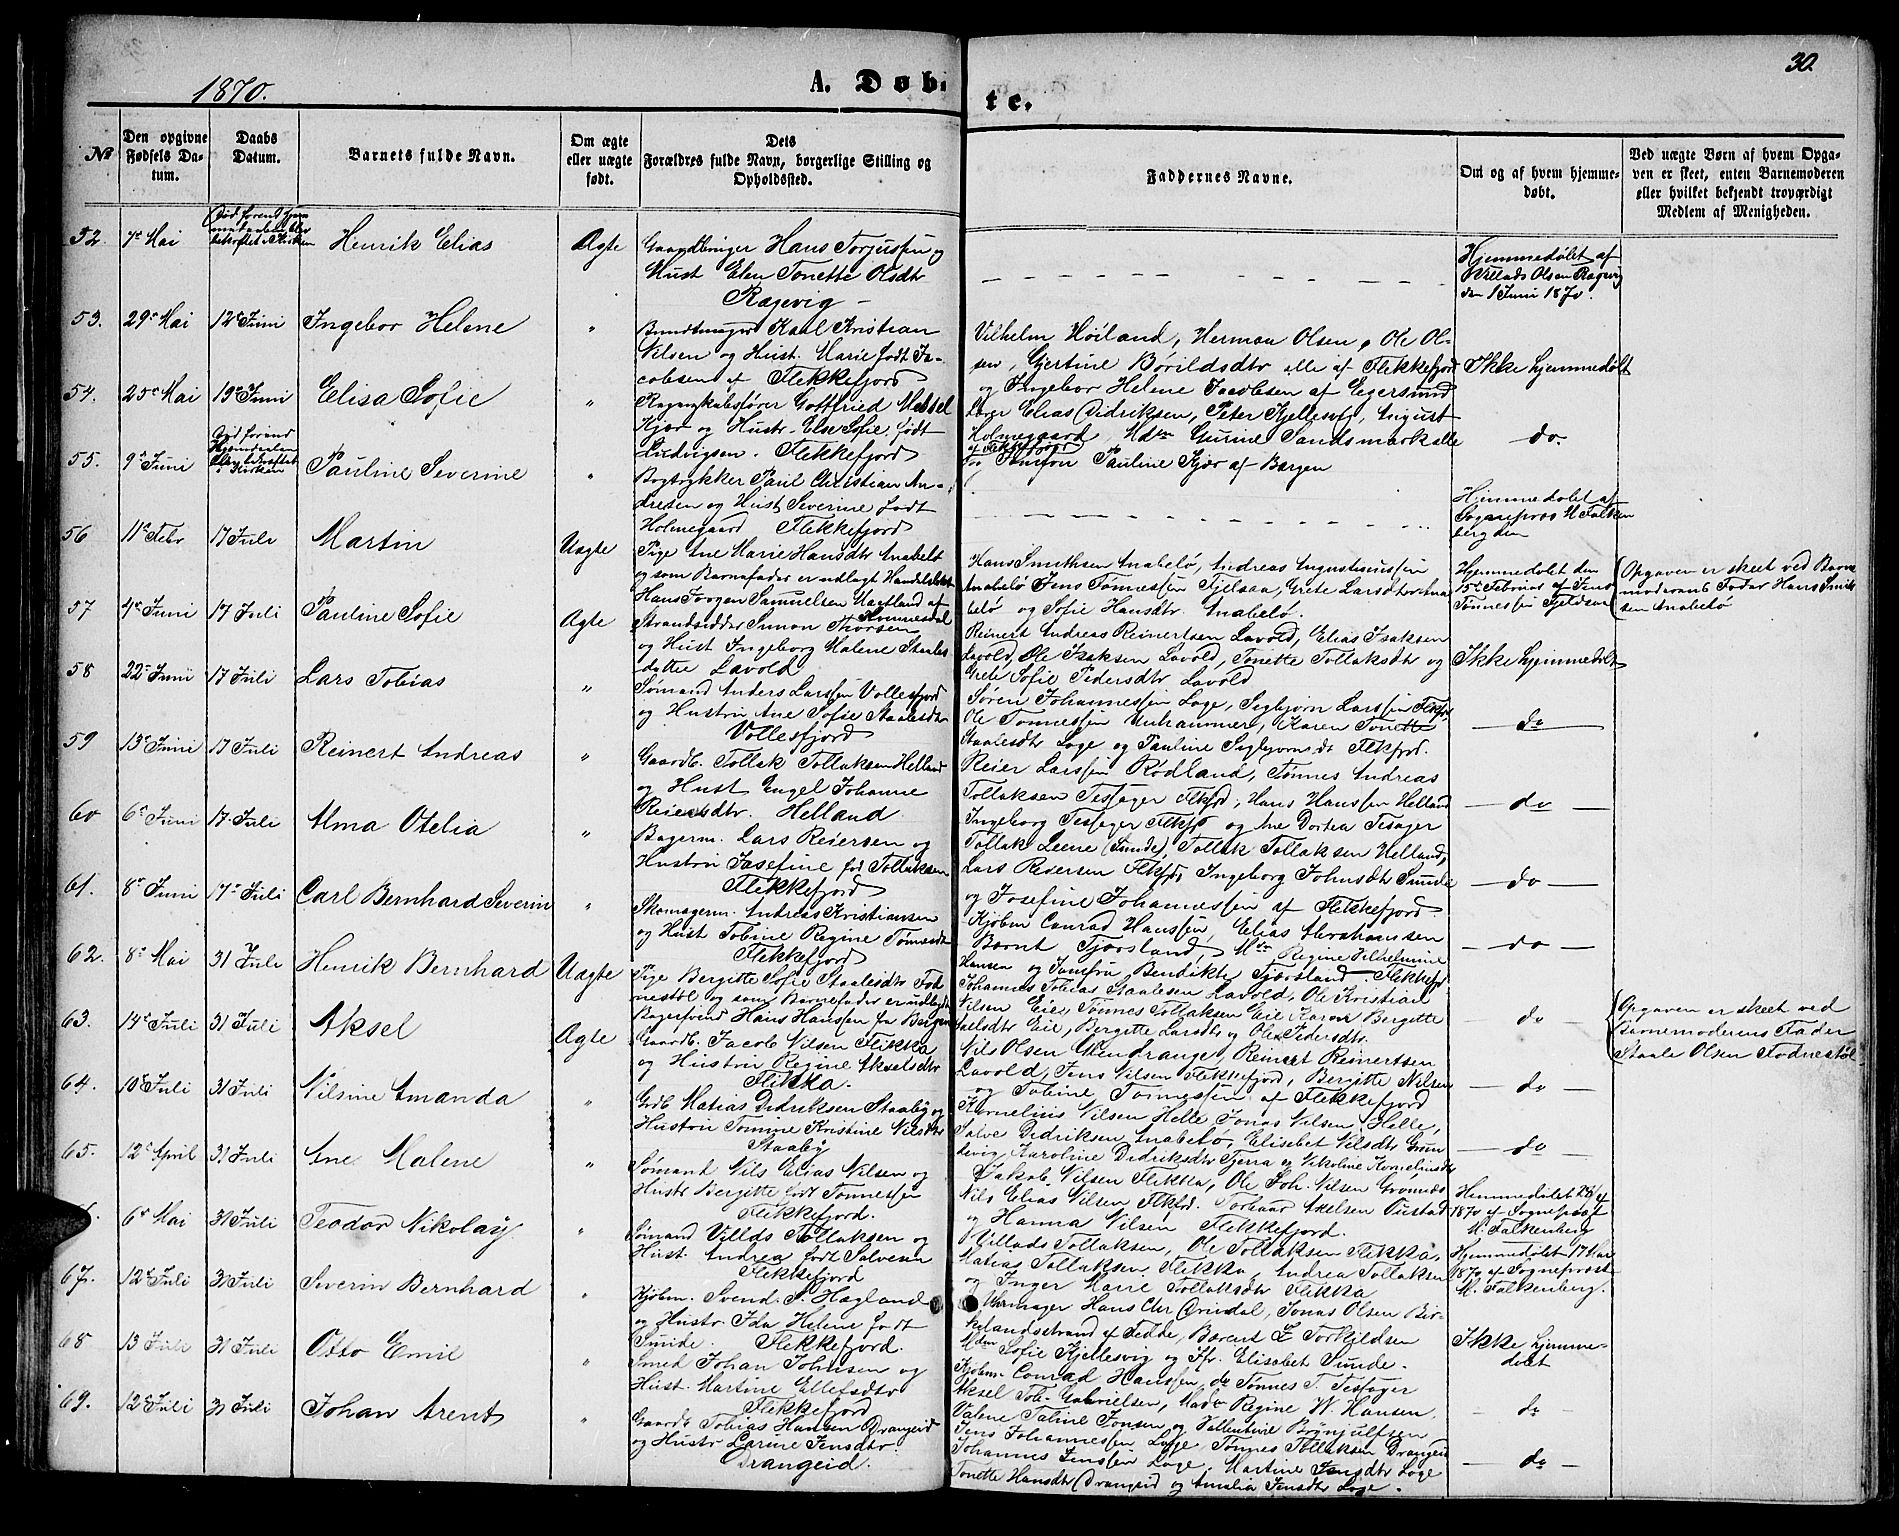 1870.
A. Døb-
te.
30.
No
Den opgivne Fødsels Da-tum.
Daabs Datum.
Barnets fulde Navn.
Om ægte eller uægte født.
Dets Forældres fulde Navn, borgerlige Stilling og Opholdssted.
Faddernes Navne.
Om og af hvem hjemme-døbt.
Ved uægte Børn af hvem Opga-ven er skeet, enten Barnemoderen eller hvilket bekjendt troværdigt Medlem af Menigheden.
52. 7de Mai
Henrik Elias
Ægte
Gaardbruger Hans Torjussen og
Hust Elen Tonette Olsdtr
Ragevig
Hjemmedøbt af
Villads Olsen Ragevig
den 1 Juni 1870.
53. 29de Mai 12te Juni Ingebor Helene "
Bundtmager Karl Kristian
Nilsen og Hust. Marie født Ja-
cobsen af Flekkefjord
Vilhelm Høiland, Herman Olsen, Ole Ol-
sen, Gjertine Børildsdtr alle af Flekkefjord
og Ingebor Helene Jacobsen af Egersund
Ikke hjemmedøbt
54. 25de Mai 19de Juni Elisa Sofie "
Regnskabsfører Gottfried Meidel
Kjær og Hustr. Else Sofie født
Ludvigsen. Flekkefjord
Elias Didriksen, Peter Kjellesvig, August
Holmegaard Mdm Gurine Sandsmark alle
af Flekkefjord
og Jomfru Pauline Kjær af Bergen
do.
55. 9de Juni
Pauline Severine "
Bogtrykker Paul Christian An-
dresen og Hust Severine født
Holmegaard Flekkefjord
Hjemmedøbt af
Sogneprøs M Falken
berg den
56 11te Febr 17 Juli Martin Uægte
Pige Ane Marie Hansdtr Anabelø
og som Barnefader er udlagt
Hans Jørgen Samuelsen
Hans Smithsen Anabelø, Andreas Augustinussen
Anabelø Jens Tønnessen Fjelsaa, Grete Larsdtr Ana
belø og Sofie Hansdtr. Anabelø.
Hjemmedøbt den
15de Februar af Jens
Tønnessen
Opgaven er skeet ved Barne
moderens Fader Hans Smith
sen Anabelø
57 4de Juni 17 Juli Pauline Sofie Ægte
Strandsidder Simon Thorsen
og Hust Ingeborg Malene Staales
datter Lavold
Reinert Andreas Reinertsen Lavold, Elias Isaksen
Lavold, Ole Isaksen Lavold, Tonette Tollaksdtr og
Grete Sofie Pedersdtr Lavold
Ikke hjemmedøbt
58 22de Juni 17 Juli Lars Tobias "
Sømand Anders Larssen Vollesfjord
og Hustru Ane Sofie Staalesdtr
Vollesfjord
Søren Johannessen Loge, Sigbjørn Larssen Flekfjd
Ole Tønnessen Unhammer, Karen Tonette
Staalesdtr Loge og Pauline Sigbjørnsdt Flekfjord.
do
59 13de Juni 17 Juli Reinert Andreas "
Gaardb. Tollak Tollaksen Helland
og Hust Engel Johanne
Reiersdtr. Helland
Reier Larssen Rødland, Tønnes Andreas
Tollaksen Tesager Flekfjd, Hans Hanssen Helland
Ingeborg Tesager Flekfjd og Ane Dortea Tesager
do
60 6te Juni 17 Juli Alma Otelia "
Bagerm. Lars Reiersen og
Hustru Josefine fød Tollaksen
Flekkefjord
Tollak Leene (Sunde), Tollak Tollaksen Helland,
Lars Reiersen Flkfjd, Ingeborg Johnsdtr Sunde
og Josefine Johannessen af Flekkefjord
do
61. 8de Juni 17de Juli Carl Bernhard Severin "
Skomagerm. Andreas Kristiansen
og Hust Tobine Regine Tønnesdt
Flekkefjord
Kjøbm Conrad Hanssen, Elias Abrahamsen
Bernt Fjørsland, Mdm Regine Vilhelmine
Hansen og Jomfru Bendikte Fjørsland Flekkefj.
do
62. 8de Mai 31 Juli Henrik Bernhard Uægte
Pige Bergitte Sofie Staalesdtr Fod
nestøl og som Barnefader er udlagt
Bagersvend Hans Hanssen fra Bergen
Johannes Tobias Staalesen Lavold, Ole Kristian
Nilsen Eie, Tønnes Tollaksen Eie Karen Bergitte
Eie, Bergitte Larsdtr og Olea Pedersdtr.
do
Opgaven er skeet ved
Barnemoderens Fader
Staale Olsen Fodnestøl
63. 14de Juli 31 Juli Aksel Ægte
Gaardb. Jacob Nilsen Flikka
og Hustru Regine Akselsdtr
Flikka.
Nils Olsen Uendrange, Reinert Reinertsen
Lavold, Jens Nilsen Flekkefjord, Bergitte Nilsen
og Tobine Tønnessen af Flekkefjord
do
64. 10de Juli 31 Juli Nilsine Amanda "
Grdb. Matias Didriksen Staaby og
Hustru Tomine Kristine Nilsdtr
Staaby
Kornelius Nilsen Helle, Jonas Nilsen Helle,
Salve Didriksen Anabelø, Elisabet Nilsdtr Grøn
devig Karoline Didriksdtr og Nikoline Korneliusdt
do
65. 12te April 31 Juli Ane Malene "
Sømand Nils Elias Nilsen og
Hustr Bergitte født Tønnessen
Flekkefjord.
Jakob Nilsen Flikka, Ole Joh. Nilsen
Nils Elias Nilsen Flkfd. Torbaar Akelsen
og Hanna Nilsen Flekkefjord.
Hemmedøbt
1870 af Sogneprøst
M. Falkenberg
6te Mai 31 Juli Teodor Nikolay "
Sømand Villds Tollaksen og
Hust. Andrea født Salvesen
Flekkefjord
Villads Tollaksen, Ole Tollaksen Flikka,
Matias Tollaksen Flikka, Andrea Tollaksen
og Inger Marie Tollaksdtr Flikka
Hemmedøbt 17
1870 af Sogneprøst
M. Falkenberg.
67. 12te Juli 31 Juli Severin Bernhard "
Kjøbm. Svend S. Hagland
og Hustr Ida Helene født
Sunde. Flekkefjord.
Uhrmager Hans Chr Orindal, Jonas Olsen Bir-
kelandsstrand af Fedde, Berent E Torkildsen
Mdm Sofie Kjellesvig og Jfr. Elisabet Sunde.
Ikke hjemme-
døbt
68 13 Juli 31 Juli Otto Emil "
Smed Johan Johnsen og
Hust. Martine Ellefsdtr
Flekkefjord
Kjøbm. Conrad Hanssen, do Tønnes T. Tesager
Aksel Tob. Gabrielsen, Mad. Regine W. Hansen,
Valene Taline Jonsen og Vallentine Brynjulfsen
do
69. 12te Juli 31 Juli Johan Arent "
Gaardb. Tobias Hansen Drangeid
og Hustr Larine Jensdtr
Drangeid.
Jens Johannessen Loge, Tønnes Tollaksen Drangeid
Johannes Jenssen Loge, Martine Jensdtr Loge
Tonette Hansdtr Drangeid og Amalia Jensdtr Loge.
do